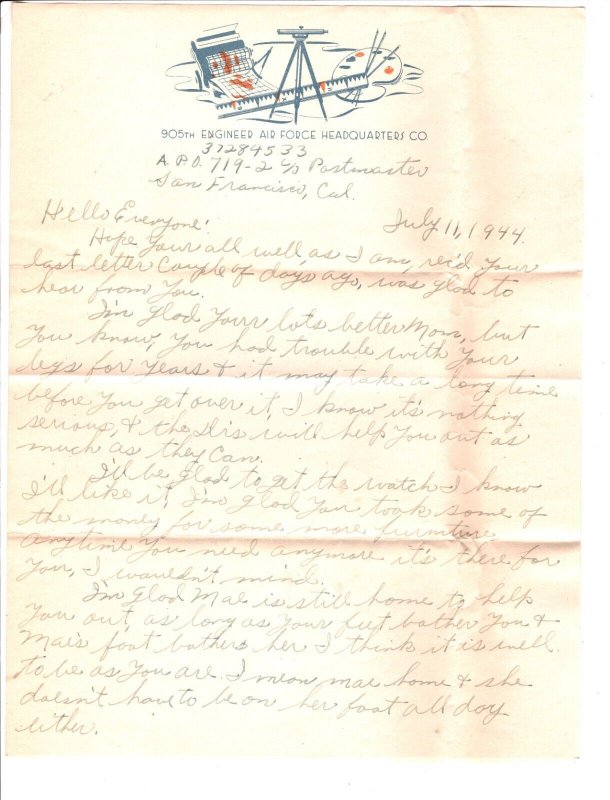 905TH ENGINEER AIR FORCE HEADQUARTERS CO.
37284533
A.P.O. 719-2 c/o Postmaster
San Francisco, Cal.
July 11, 1944.
Hello Everyone!
Hope your all well, as I am, rec'd your
last letter couple of days ago, was glad to
hear from you.
I'm glad your lots better Mom, but
you know, you had trouble with your
legs for years & it may take a long time
before you get over it, I know it's nothing
serious, & the Drs will help you out as
much as they can.
I'll be glad to get the watch I know
I'll like it, I'm glad you took some of
the money for some more furniture
anytime you need anymore it's there for
you, I wouldn't mind.
I'm glad Mae is still home to help
you out as long as your feet bother you &
Mae's foot bothers her I think it is well
to be as you are. I mean mae home & she
doesn't have to be on her foot all day
either.